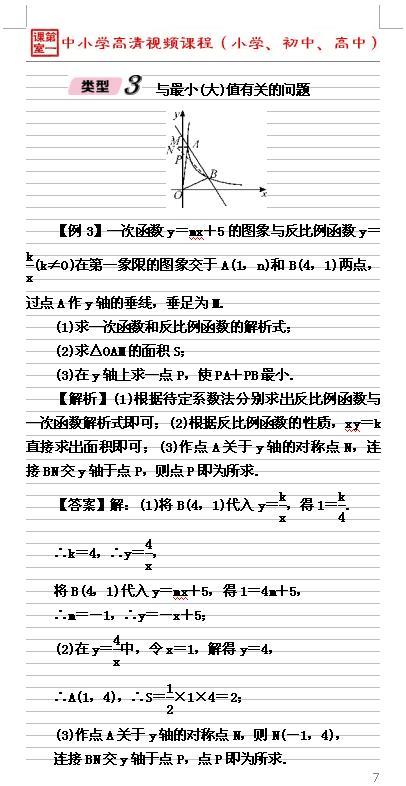 课第
室一 中小学高清视频课程（小学、初中、高中）
类型 3 与最小(大)值有关的问题
y
M
N
A
P
B
O
x
【例 3】一次函数 y＝mx＋5 的图象与反比例函数 y＝
k/x(k≠0)在第一象限的图象交于 A(1，n)和 B(4，1)两点，
过点 A 作 y 轴的垂线，垂足为 M.
(1)求一次函数和反比例函数的解析式；
(2)求△OAM 的面积 S；
(3)在 y 轴上求一点 P，使 PA＋PB 最小.
【解析】(1)根据待定系数法分别求出反比例函数与
一次函数解析式即可；(2)根据反比例函数的性质，xy＝k
直接求出面积即可；(3)作点 A 关于 y 轴的对称点 N，连
接 BN 交 y 轴于点 P，则点 P 即为所求.
【答案】解：(1)将 B(4，1)代入 y＝k/x，得 1＝k/4.
∴k＝4，∴y＝4/x，
将 B(4，1)代入 y＝mx＋5，得 1＝4m＋5，
∴m＝－1，∴y＝－x＋5；
(2)在 y＝4/x中，令 x＝1，解得 y＝4，
∴A(1，4)，∴S＝1/2×1×4＝2；
(3)作点 A 关于 y 轴的对称点 N，则 N(－1，4)，
连接 BN 交 y 轴于点 P，点 P 即为所求.
7